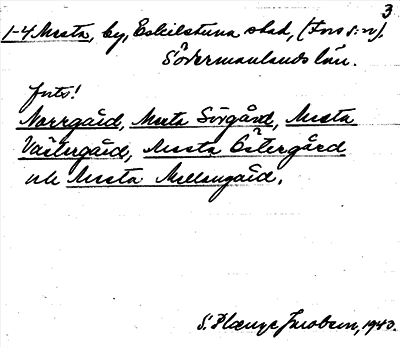 3
1-4 Mesta, by, Eskilstuna stad, (Fors s:n),
Södermanlands län.
forts!
Norrgård, Mesta Sörgård, Mesta
Västergård, Mesta Östergård
och Mesta Mellangård.
S. Plænge Jacobson, 1940.